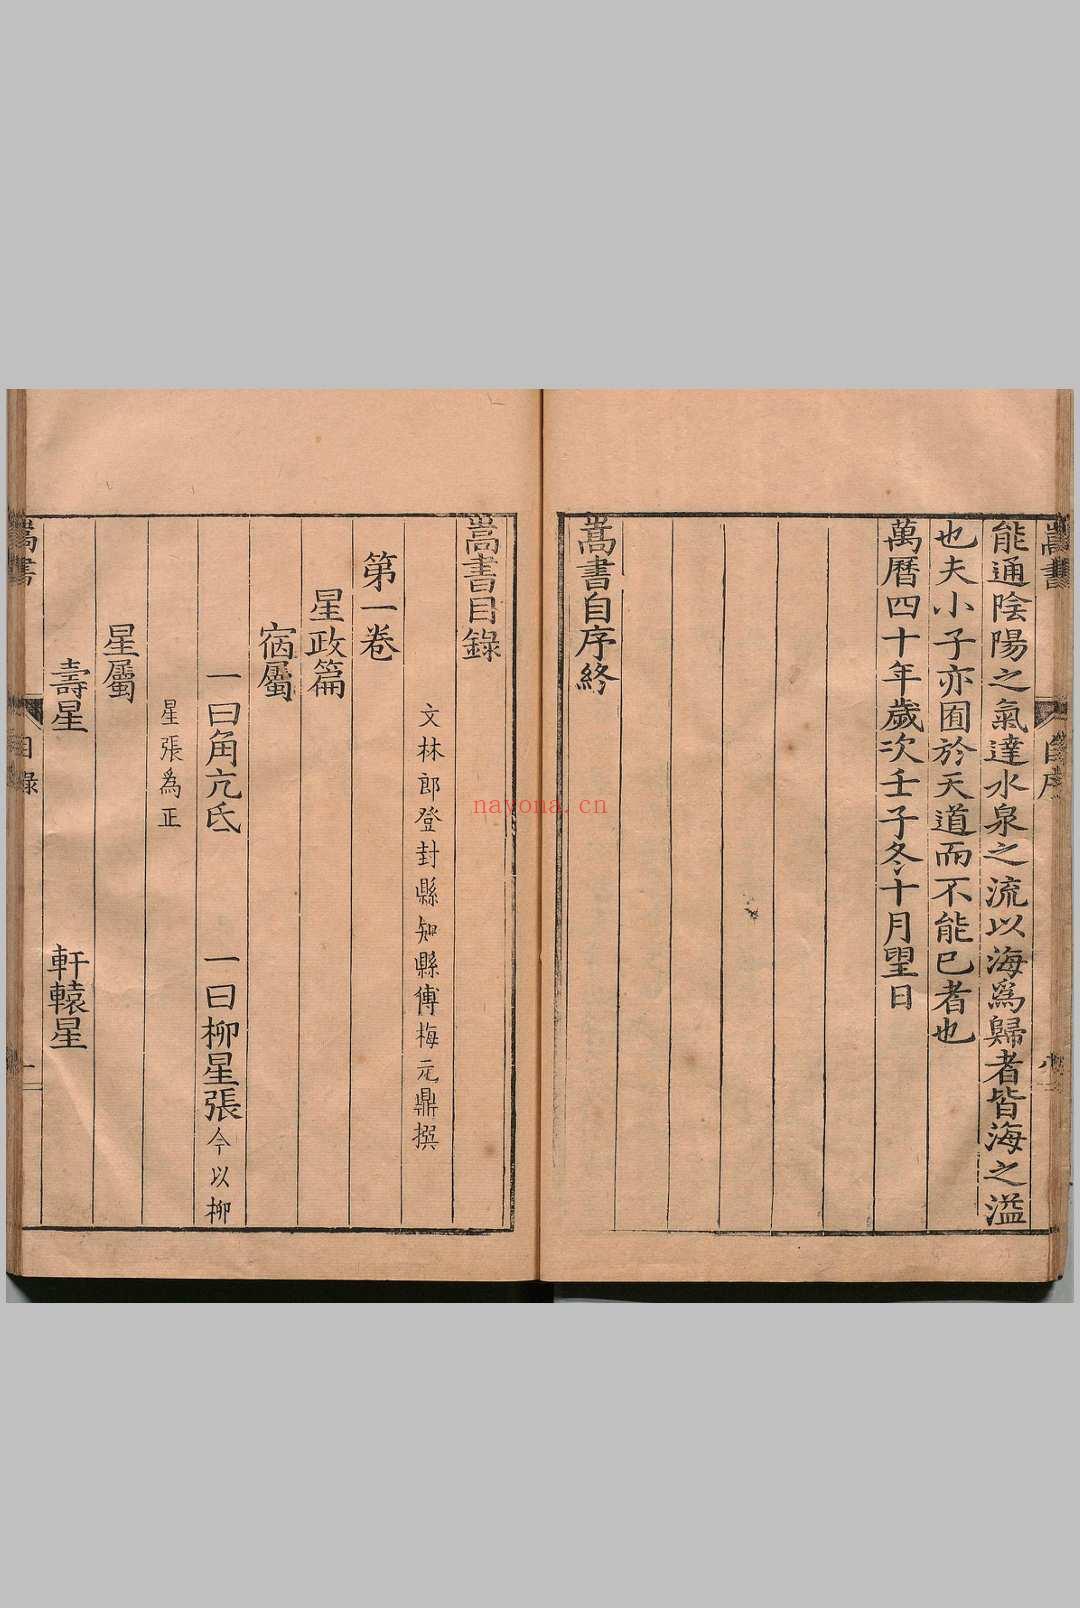 嵩書
自序
八
能通陰陽之氣達水泉之流以海爲歸者皆海之溢
也夫小子亦囿於天道而不能已者也
萬曆四十年歲次壬子冬十月望日
嵩書自序終
嵩書目錄
文林郎登封縣知縣傅梅元鼎撰
第一卷
星政篇
宿屬
一曰角亢氐 一曰柳星張今以柳
星張爲正
星屬
壽星 軒轅星
嵩書
目錄
一
nayona.cn